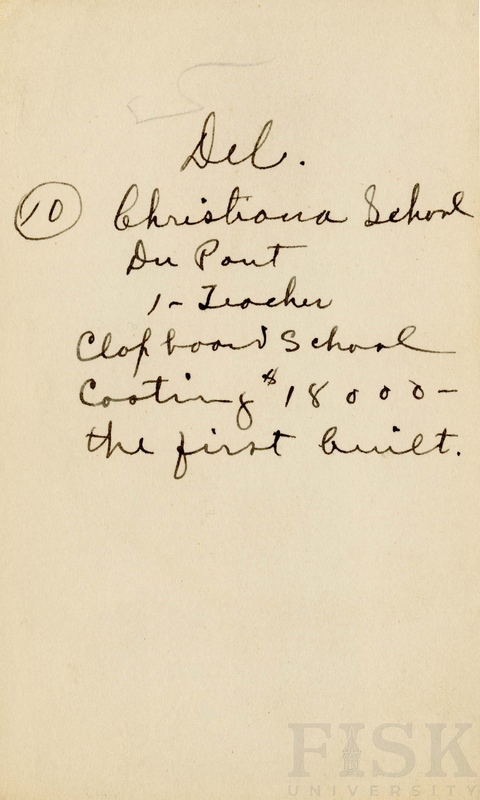 Del.
10 Christiana School
Du Pont
1- Teacher
Clapboard School
Costing $18000-
the first built.
FISK
UNIVERSITY